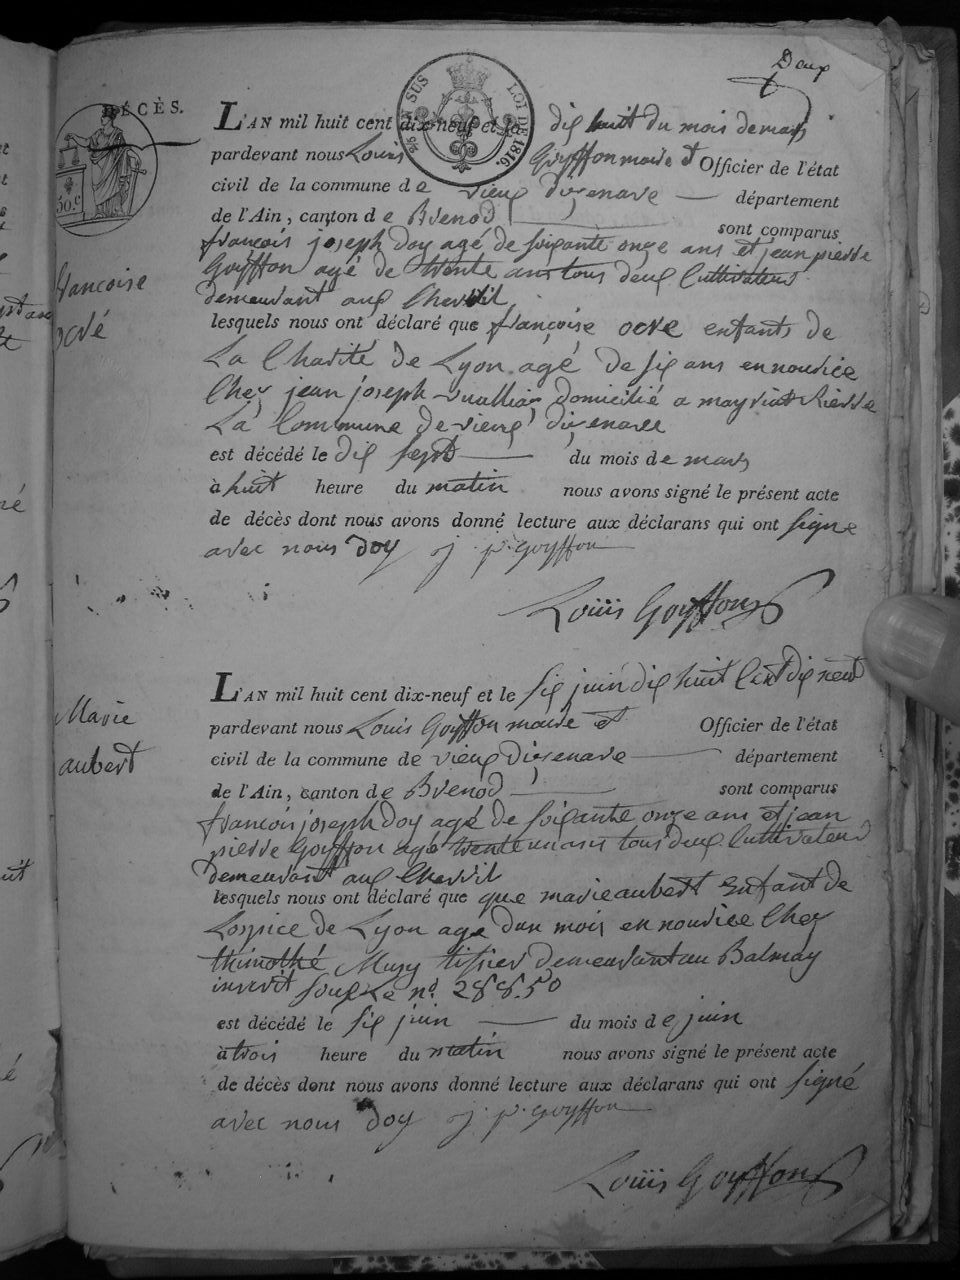 Deux
DÉCÈS.
EN SUS
LOI DE 1816.
50.c
L'AN mil huit cent dix-neuf et le dix huit du mois de mars
pardevant nous Louis Goyffon maire et Officier de l'état
civil de la commune de vieux d'izenave département
de l'Ain, canton de Brenod sont comparus
françois joseph Doy agé de soixante onze ans et jean pierre
Goyffon agé de trente ans tous deux Cultivateurs
demeurant aux Chevril
françoise
ocré
lesquels nous ont déclaré que françoise ocre enfants de
La Charité de Lyon agé de six ans en nourice
Chez jean joseph domicilié a mayriat Rierre
La Commune de vieux d'izenave
est décédé le dix sept du mois de mars
à huit heure du matin nous avons signé le présent acte
de décès dont nous avons donné lecture aux déclarans qui ont signe
avec nous Doy j. p. goyffon
Louis Goyffon
L'AN mil huit cent dix-neuf et le six juin dix huit Cent dix neuf
pardevant nous Louis Goyffon maire et Officier de l'état
civil de la commune de vieux d'izenave département
de l'Ain, canton de Brenod sont comparus
Marie
aubert
francois joseph Doy agé de soixante onze ans et jean
pierre Goyffon agé trente un ans tous deux Cultivateurs
demeurant aux Chevril
lesquels nous ont déclaré que que marie aubert Enfant de
Lospice de Lyon agé dun mois en nourice Chez
thimothé Musy tissier demeurant au Balmay
inscrit soux Le n.º 28850
est décédé le six juin du mois de juin
à trois heure du matin nous avons signé le présent acte
de décès dont nous avons donné lecture aux déclarans qui ont signé
avec nous Doy j. p. goyffon
Louis Goyffon